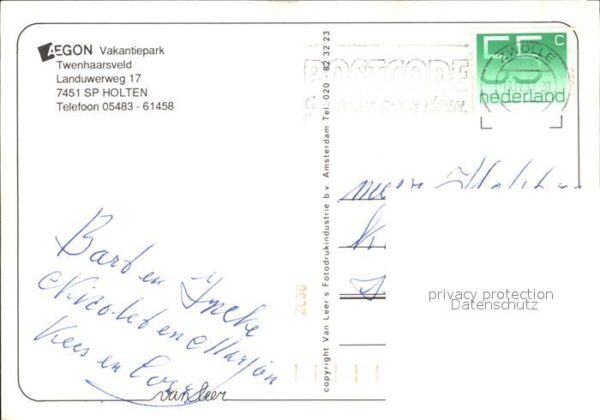 AEGON Vakantiepark
Twenhaarsveld
Landuwerweg 17
7451 SP HOLTEN
Telefoon 05483 - 61458
copyright Van Leer's Fotodrukindustrie b.v. Amsterdam Tel. 020 - 82 32 23
POSTCODE
doen.
ZWOLLE
55 c
nederland
Bart en Ineke
Nicolet en Marjon
Kees en
van Leer
privacy protection
Datenschutz